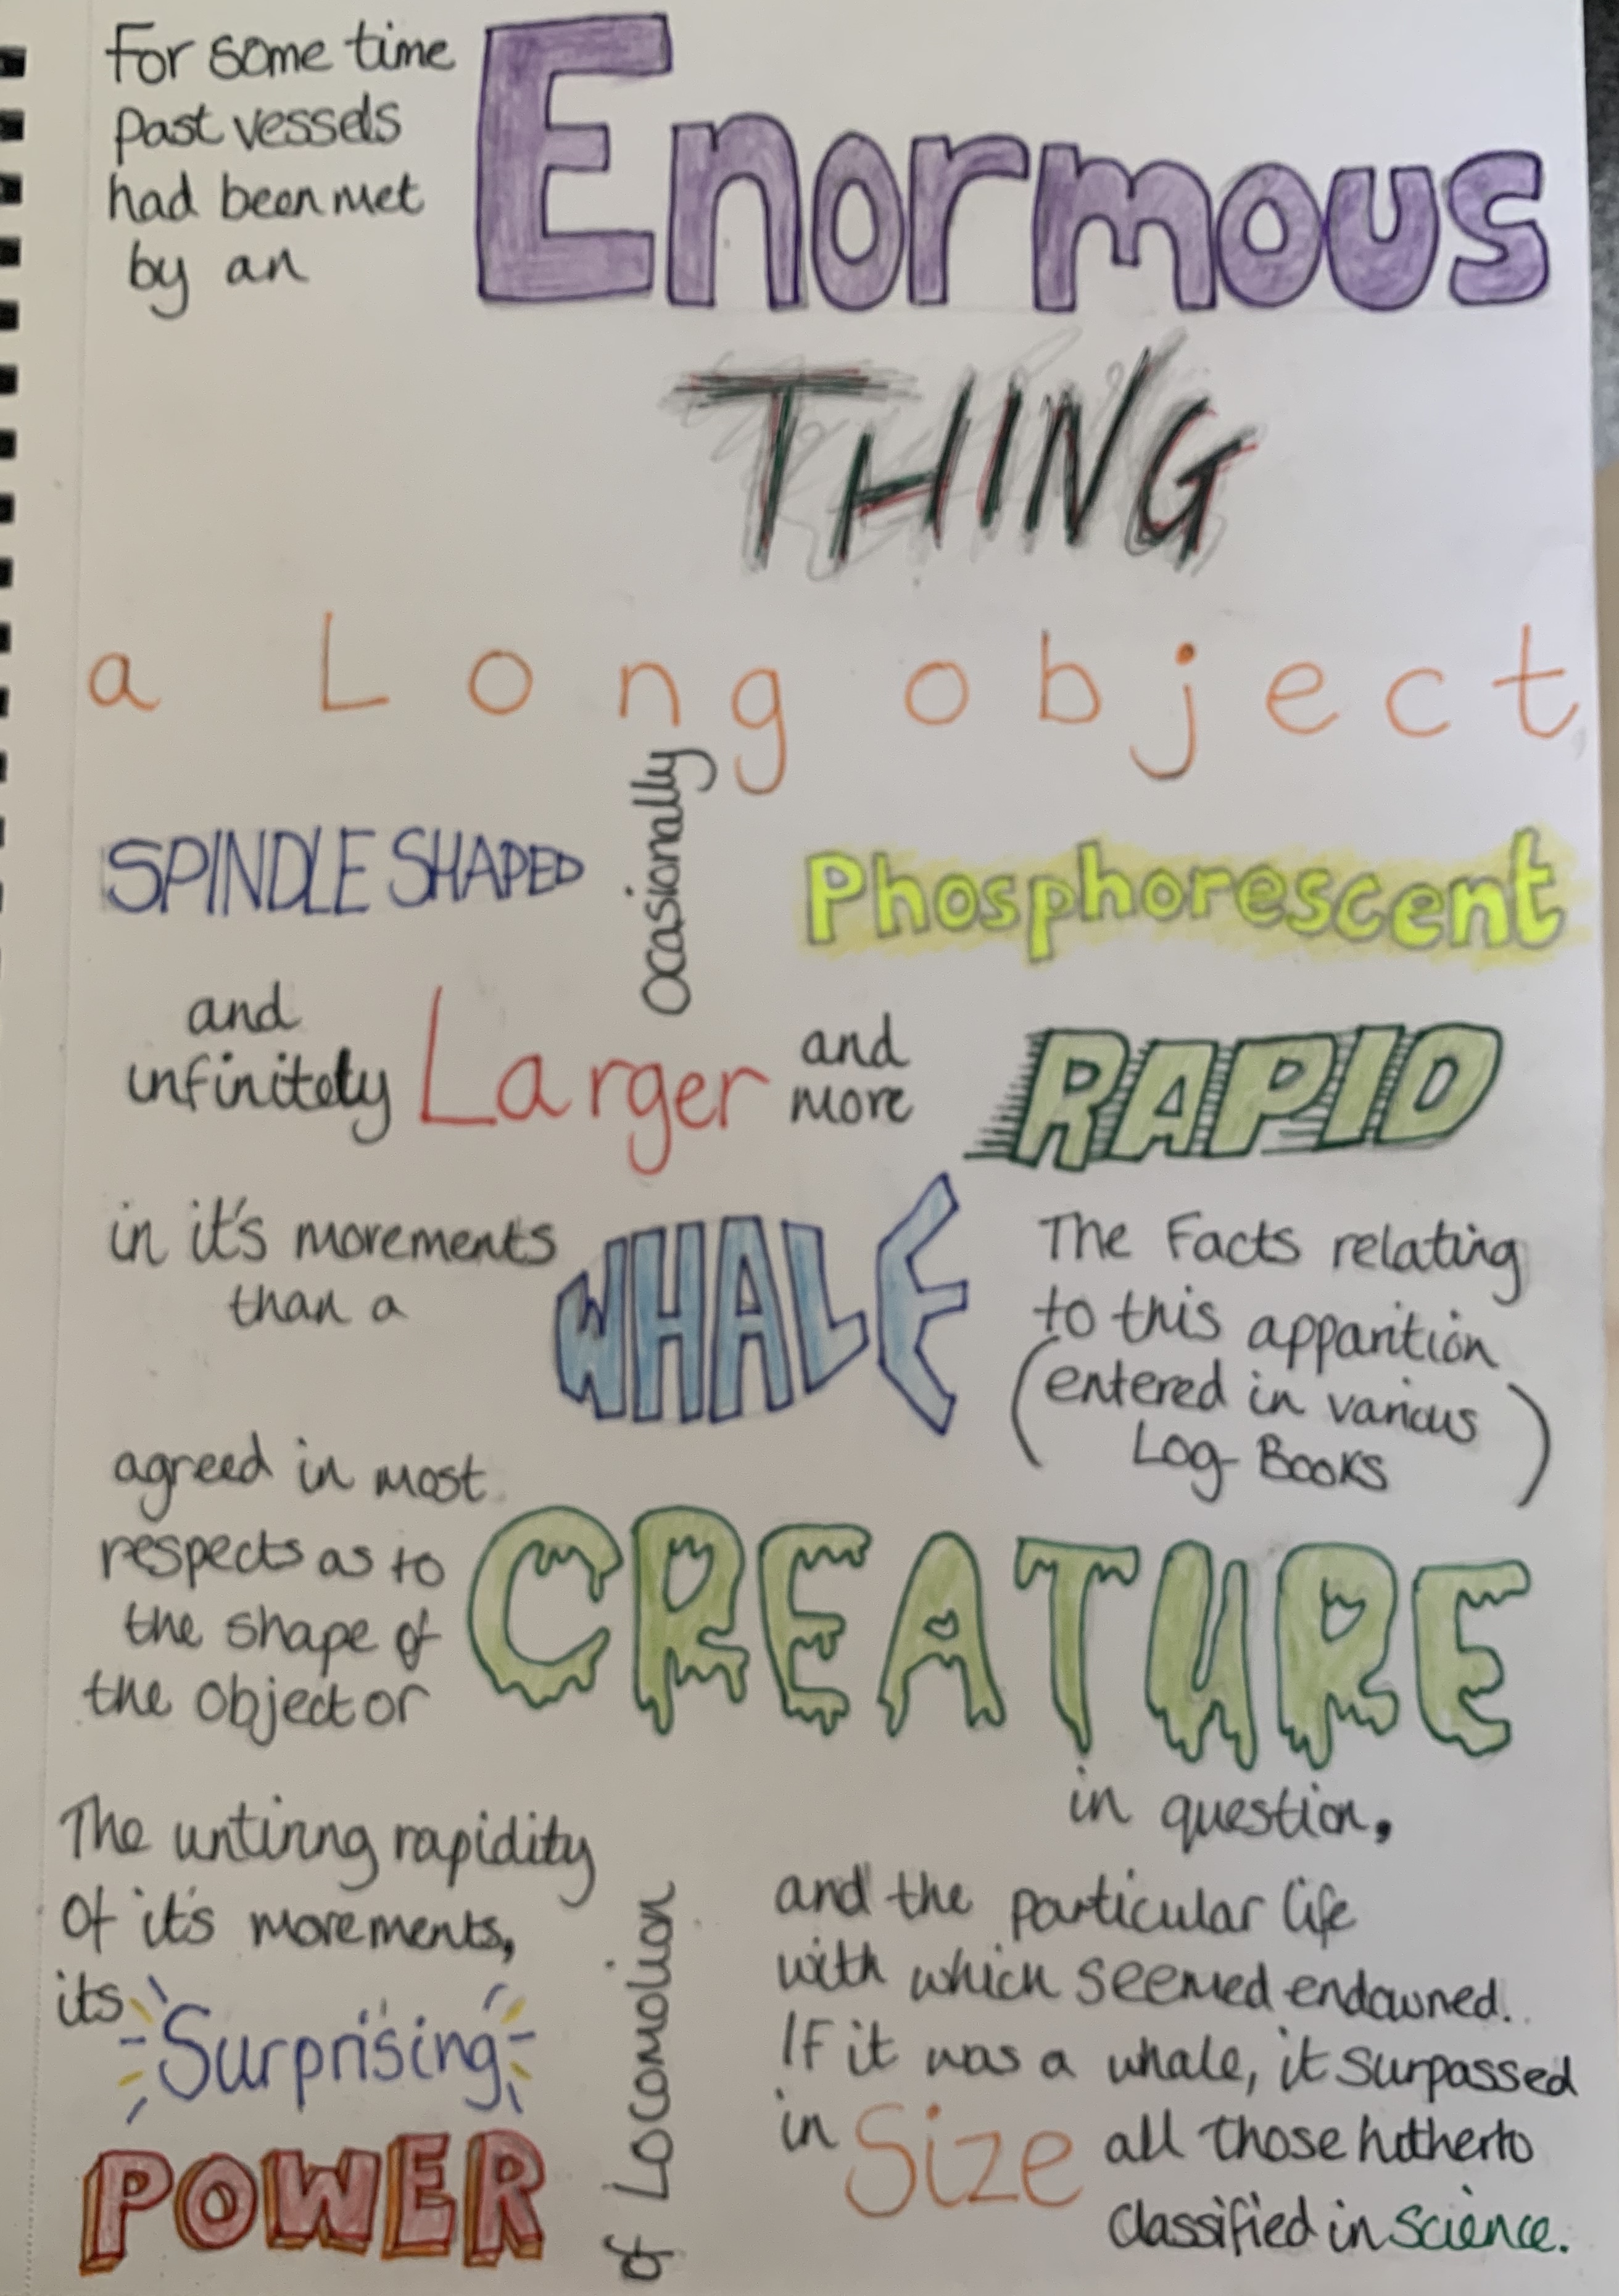 For some time
past vessels
had been met
by an
Enormous
THING
a Long object
SPINDLE SHAPED
Ocasionally
Phosphorescent
and
infinitely
Larger
and
more
RAPID
in it's movements
than a
WHALE
The Facts relating
to this apparition
(entered in various
Log Books)
agreed in most
respects as to
the shape of
the object or
CREATURE
in question,
The untiring rapidity
Of it's movements,
its
Surprising
POWER
of Locomotion
and the particular life
with which seemed endowned.
If it was a whale, it surpassed
in Size all those hitherto
classified in science.